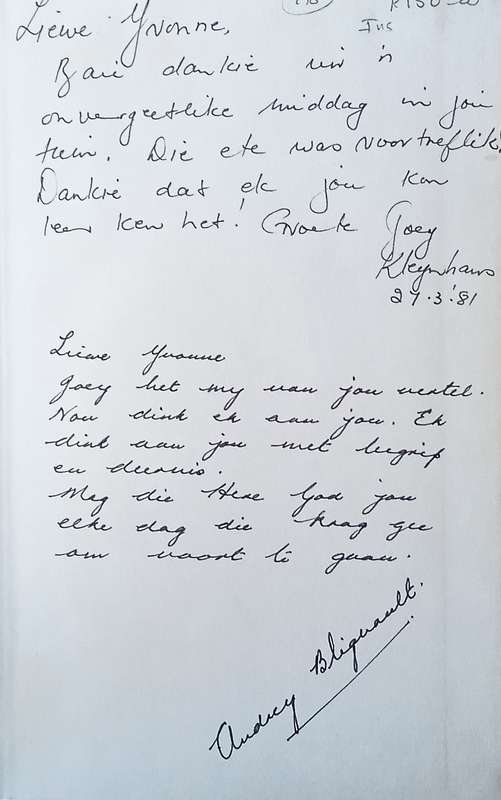 R150-00
Inc
Liewe Yvonne,
Baie dankie vir 'n
onvergeetlike middag in jou
tuin. Die ete was voortreflik.
Dankie dat ek jou kon
leer ken het! Groete Joey
Kleynhans
27.3.'81
Liewe Yvonne
Joey het my van jou vertel.
Nou dink ek aan jou. Ek
dink aan jou met begrip
en deernis.
Mag die Here God jou
elke dag die krag gee
om voort te gaan.
Audrey Blignault.